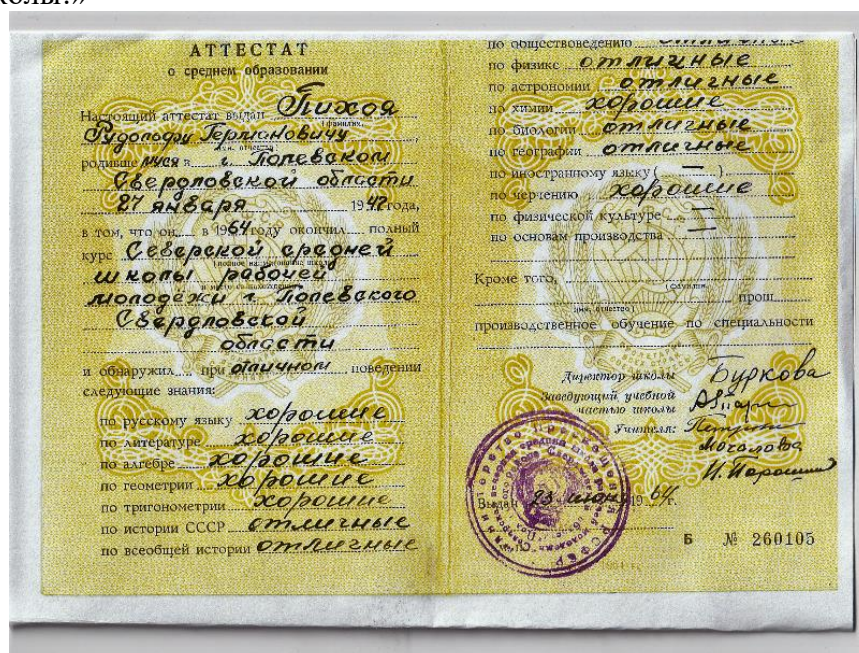 колы!»
АТТЕСТАТ
о среднем образовании
Настоящий аттестат выдан Пихоя
(фамилия,
Рудольфу Германовичу,
имя, отчество)
родившемуся в г. Полевском
Свердловской области
27 января 1947 года,
в том, что он в 1964 году окончил полный
курс Северской средней
(полное наименование школы
школы рабочей
и место ее нахождения)
молодежи г. Полевского
Свердловской
области
и обнаружил при отличном поведении
следующие знания:
по русскому языку хорошие
по литературе хорошие
по алгебре хорошие
по геометрии хорошие
по тригонометрии хорошие
по истории СССР отличные
по всеобщей истории отличные
по обществоведению отличные
по физике отличные
по астрономии отличные
по химии хорошие
по биологии отличные
по географии отличные
по иностранному языку ( — )
по черчению хорошие
по физической культуре —
по основам производства —
Кроме того,
(фамилия,
имя, отчество) прош
производственное обучение по специальности
Директор школы Буркова
Заведующий учебной
частью школы
Учителя:
Выдан 23 июня 1964 г.
Б № 260105